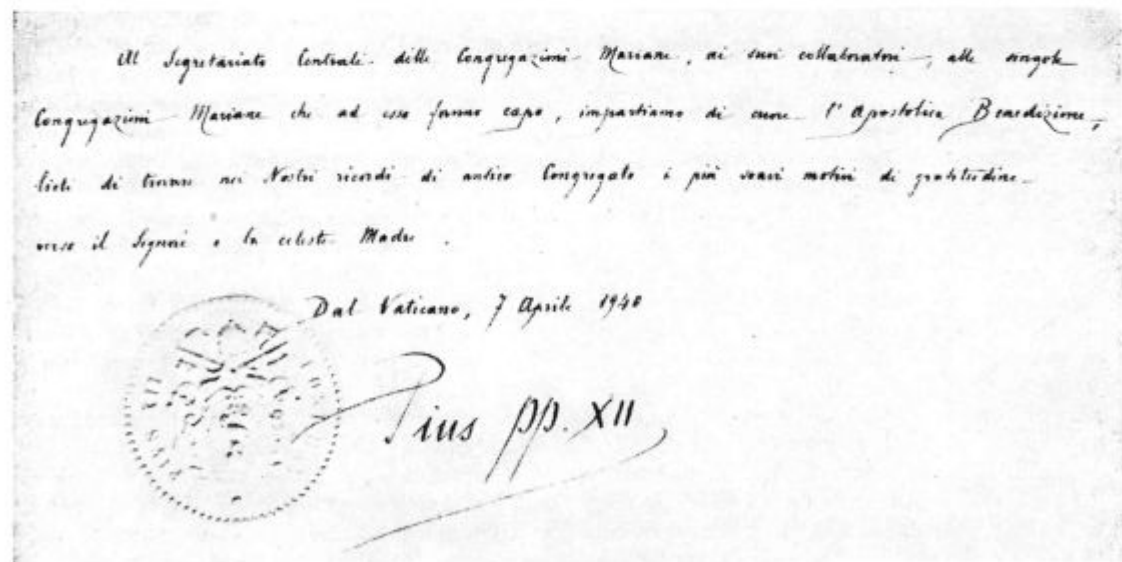 Al Segretariato Centrale delle Congregazioni Mariane, ai suoi collaboratori, alle singole
Congregazioni Mariane che ad esso fanno capo, impartiamo di cuore l'Apostolica Benedizione,
lieti di trovare nei Nostri ricordi di antico Congregato i più soavi motivi di gratitudine
verso il Signore e la celeste Madre.
Dal Vaticano, 7 Aprile 1940
Pius pp. XII